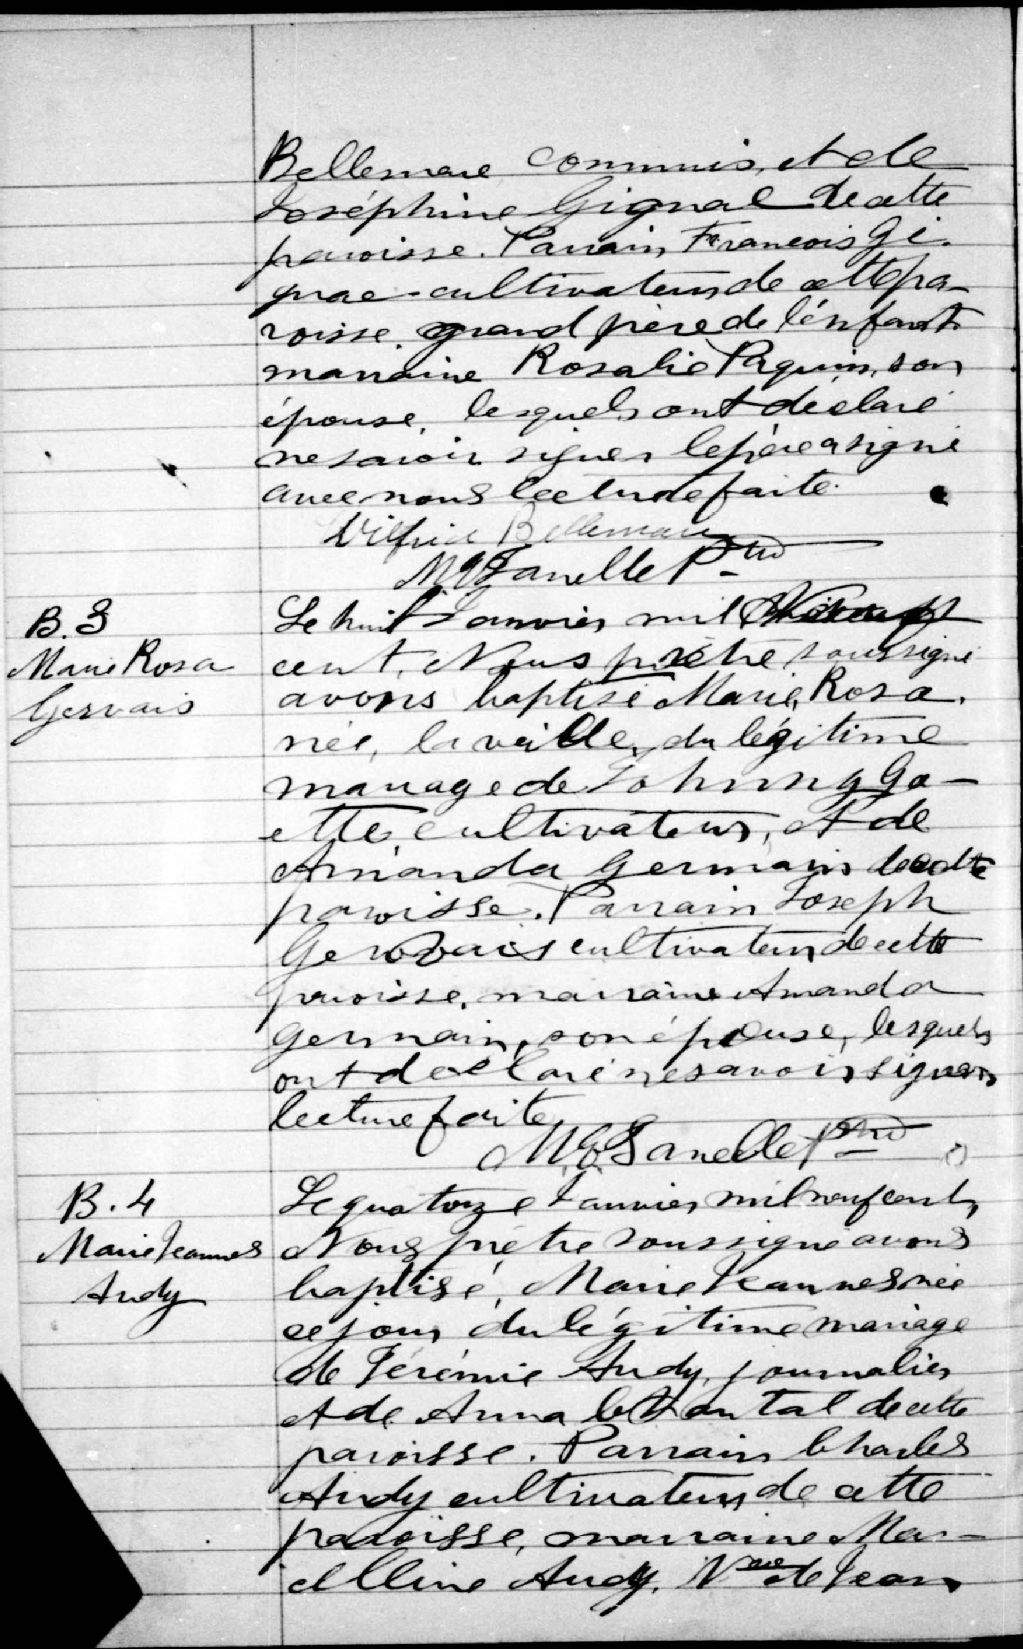 Bellemare commis, et de
Joséphine Gignac de cette
paroisse. Parrain François Gi-
gnac cultivateur de cette pa-
roisse. grand père de l'enfant
marraine Rosalie Paquin, son
épouse, lesquels ont déclaré
ne savoir signer le père a signé
avec nous lecture faite.
Wilfrid Bellemare
Janelle Ptre
B. 3
Marie Rosa
Gervais
Le huit Janvier mil
cent, Nous prêtre soussigné
avons baptisé Marie, Rosa.
née, la veille, du légitime
mariage de Johnny Ga-
ette, cultivateur, et de
Amanda Germain de cette
paroisse. Parrain Joseph
Gervais cultivateur de cette
paroisse, marraine Amanda
Germain, son épouse, lesquels
ont déclaré ne savoir signer
lecture faite
Janelle Ptre
B. 4
Marie Jeanne
Audy
Le quatorze Janvier mil neuf cent,
Nous prêtre soussigné avons
baptisé, Marie Jeanne née
ce jour, du légitime mariage
de Jérémie Audy, journalier
et de Anna de cette
paroisse. Parrain Charles
Audy cultivateur de cette
paroisse, marraine Mar-
celline Audy, Vve de Jean